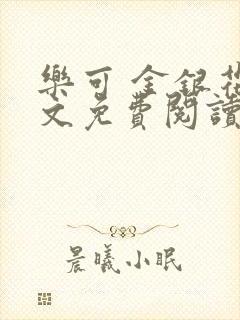 樂可 金銀花
文免費閱讀
晨曦小眠